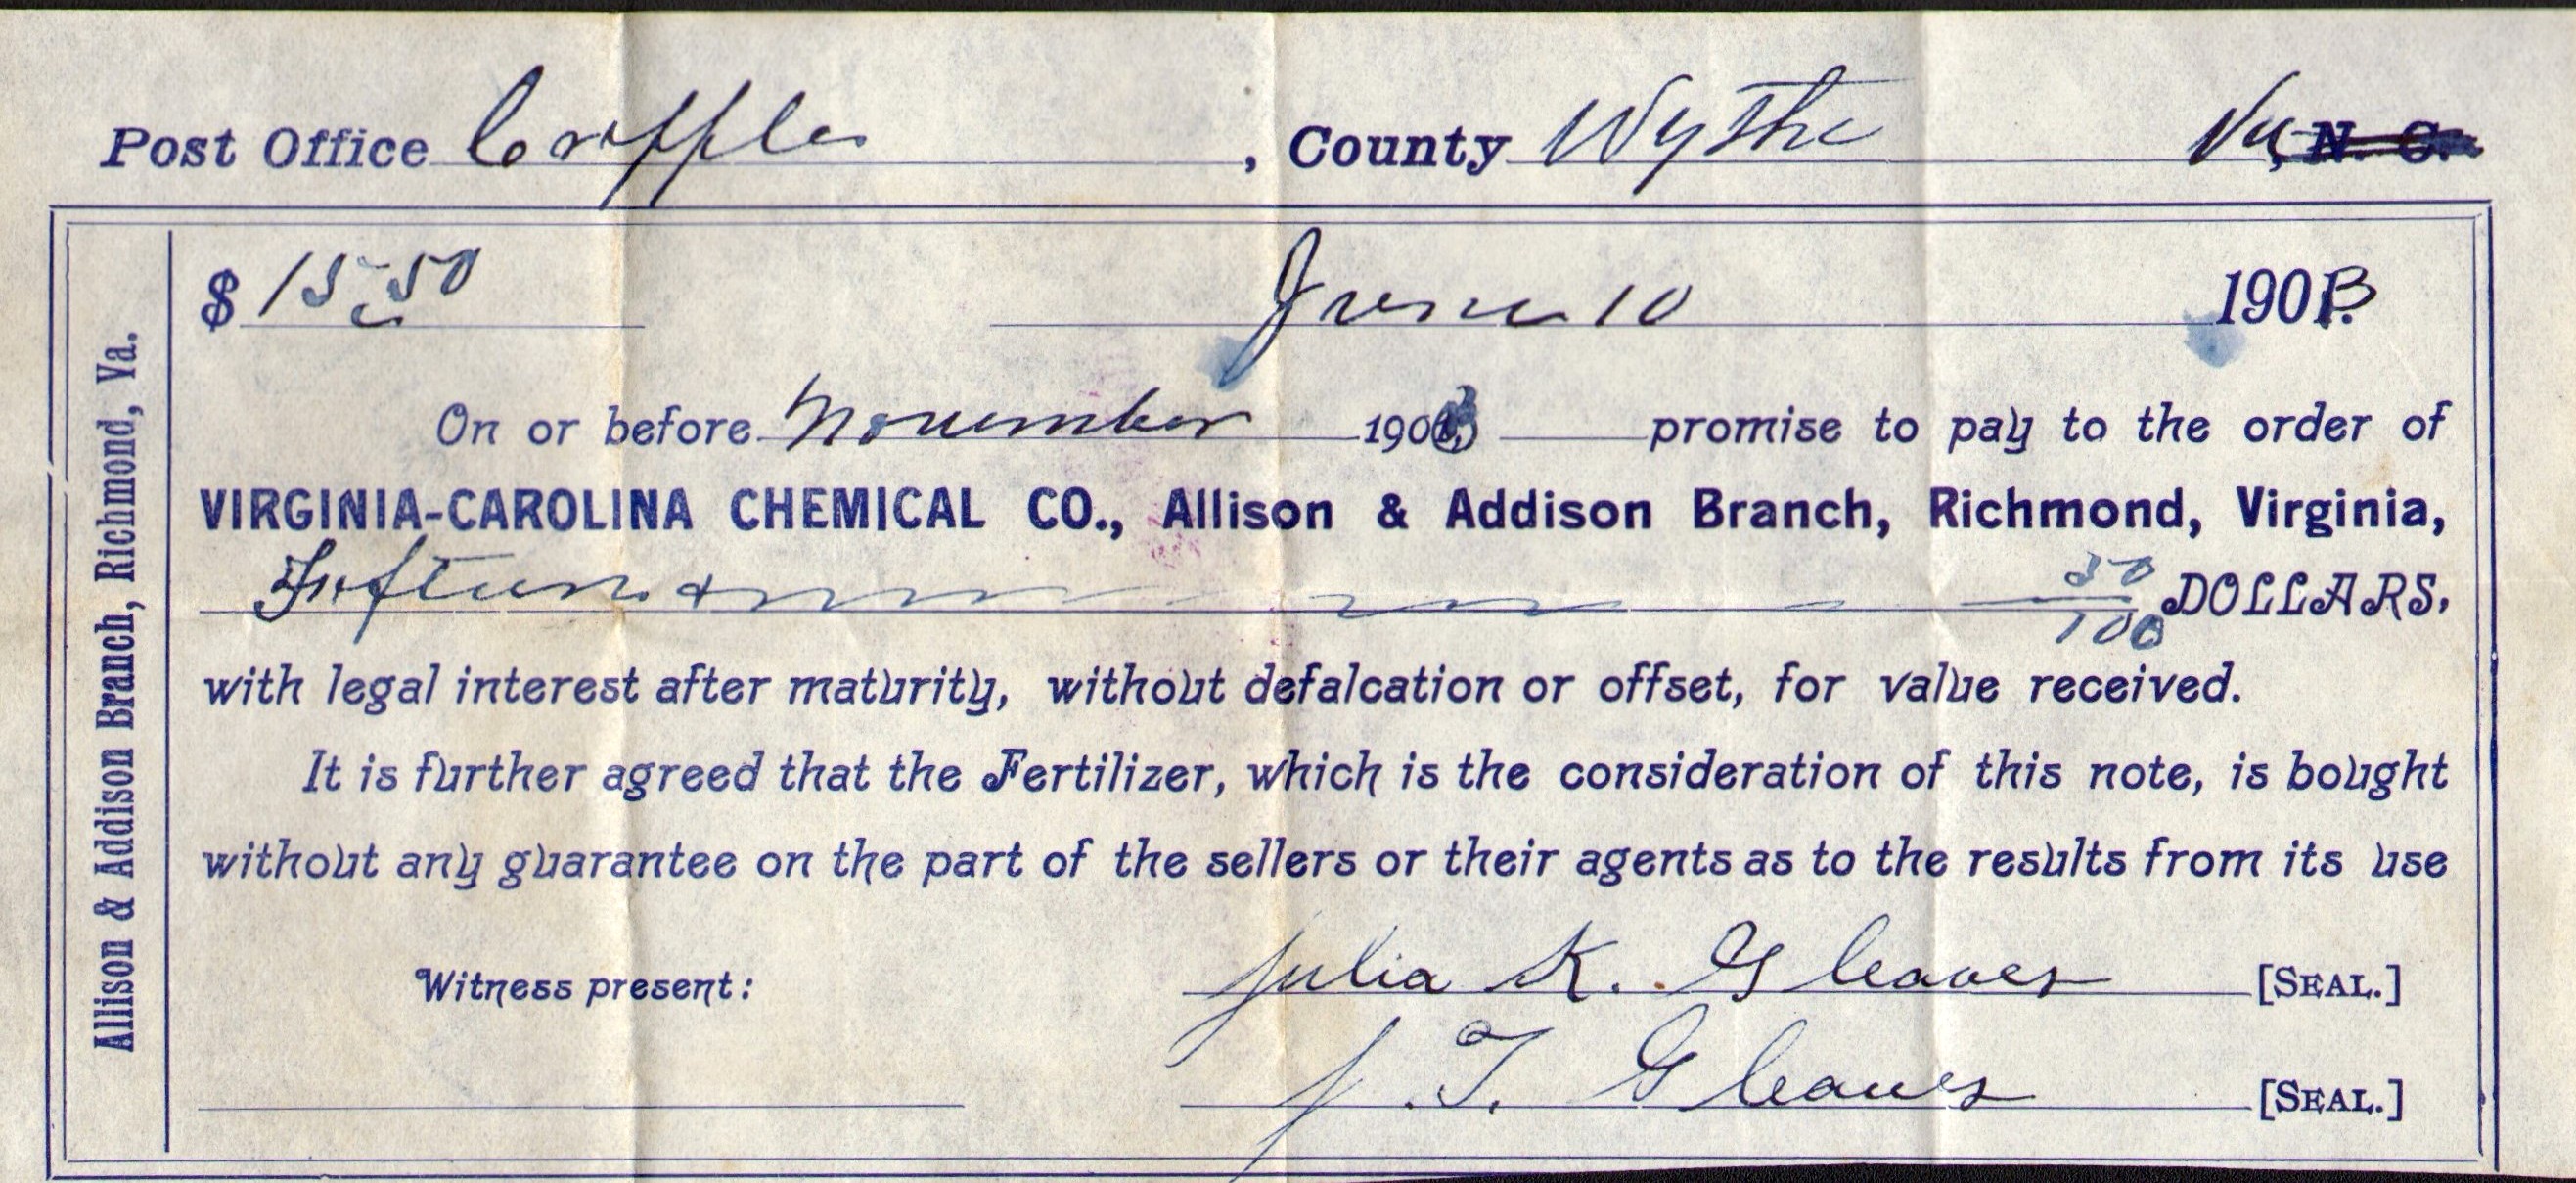 Post Office Cripple, County Wythe Va, N. C.
$ 15.50 June 10 1903
On or before November 1903 promise to pay to the order of
VIRGINIA-CAROLINA CHEMICAL CO., Allison & Addison Branch, Richmond, Virginia,
Fifteen & 50/100 DOLLARS,
with legal interest after maturity, without defalcation or offset, for value received.
It is further agreed that the Fertilizer, which is the consideration of this note, is bought
without any guarantee on the part of the sellers or their agents as to the results from its use
Witness present: Julia K. Gleaves [SEAL.]
J. T. Gleaves [SEAL.]
Allison & Addison Branch, Richmond, Va.